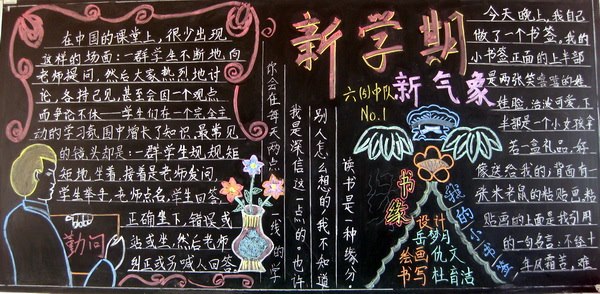 在中国的课堂上，很少出现
这样的场面：一群学生不断地向
老师提问，然后大家热烈地讨
论，各持己见，甚至会因一个观点
而争论不休——学生们在一个完全主
动的学习氛围中增长了知识，最常见
的镜头却是：一群学生规规矩
矩地坐着，接着是老师发问，
学生举手，老师点名，学生回答，
正确坐下，错误或
站或坐，然后老师
纠正或另喊人回答。
勤问
新学期
新气象
六(5)中队
No.1
你会在每天两点
一线的学
我是深信这一点的。也许
别人怎么想的，我不知道
读书是一种缘分。
书缘
我的小书
设计
岳梦月
绘画 仇文
书写 杜育洁
今天晚上，我自己
做了一个书签，我的
小书签正面的上半部
是两张笑嘻嘻的娃
娃脸，活泼可爱，下
半部是一个小女孩拿
着一盒礼品，好
像送给我的，背面有一
张米老鼠的粘贴画，粘
贴画的上面是我引用
的一句名言：不经土